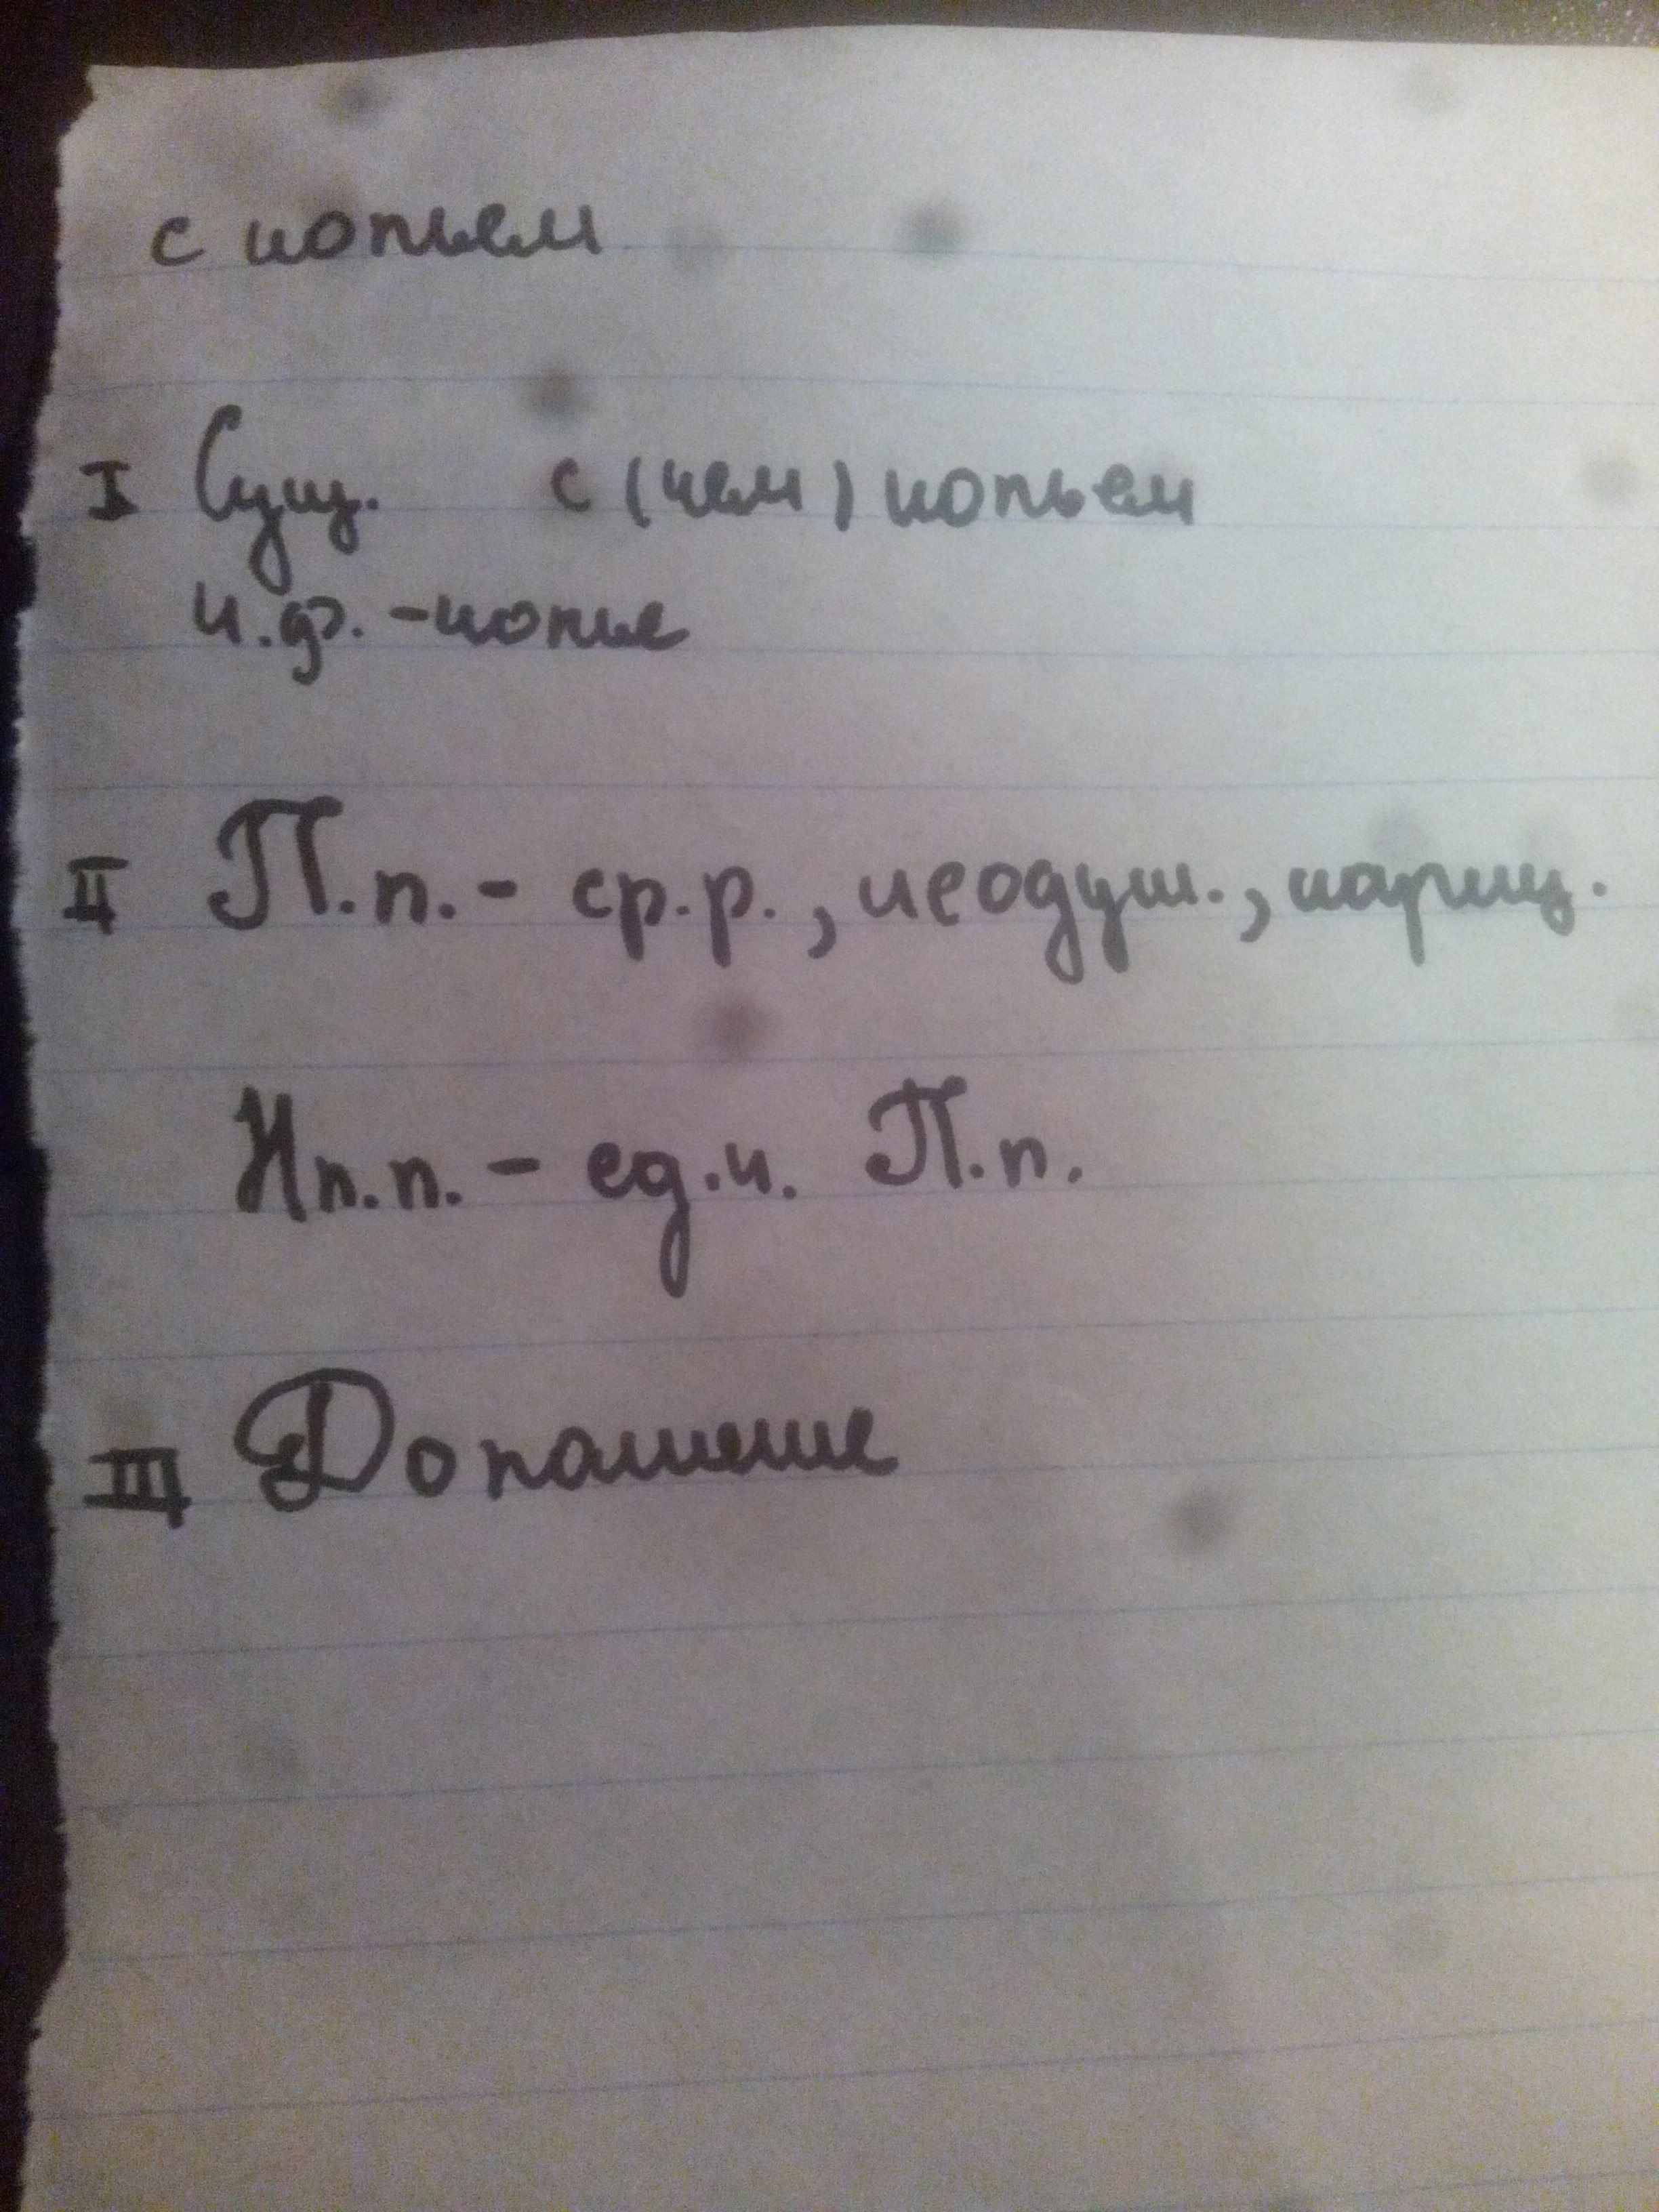 с копьем
I Сущ. с (чем) копьем
н.ф. - копье
II П.п. - ср.р., неодуш., нариц.
Нп.п. - ед.ч. П.п.
III Дополнение